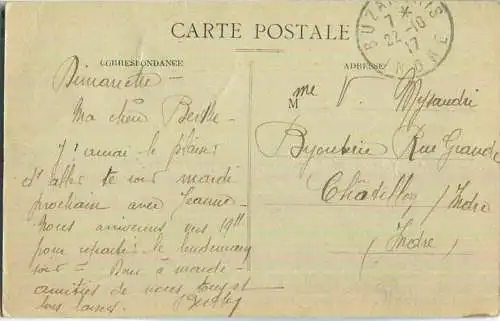 CARTE POSTALE
CORRESPONDANCE
ADRESSE
7 *
22-10
17
Dimanche —
Ma chère Berthe
J'aurai le plaisir
d'aller te voir mardi
prochain avec Jeanne —
Nous arriverons vers
pour repartir le lendemain
soir — Bon à mardi —
amitiés de nous tous et
bons baisers.
Mme V.
Bijouterie Rue Grande
Châtillon / Indre
(Indre)